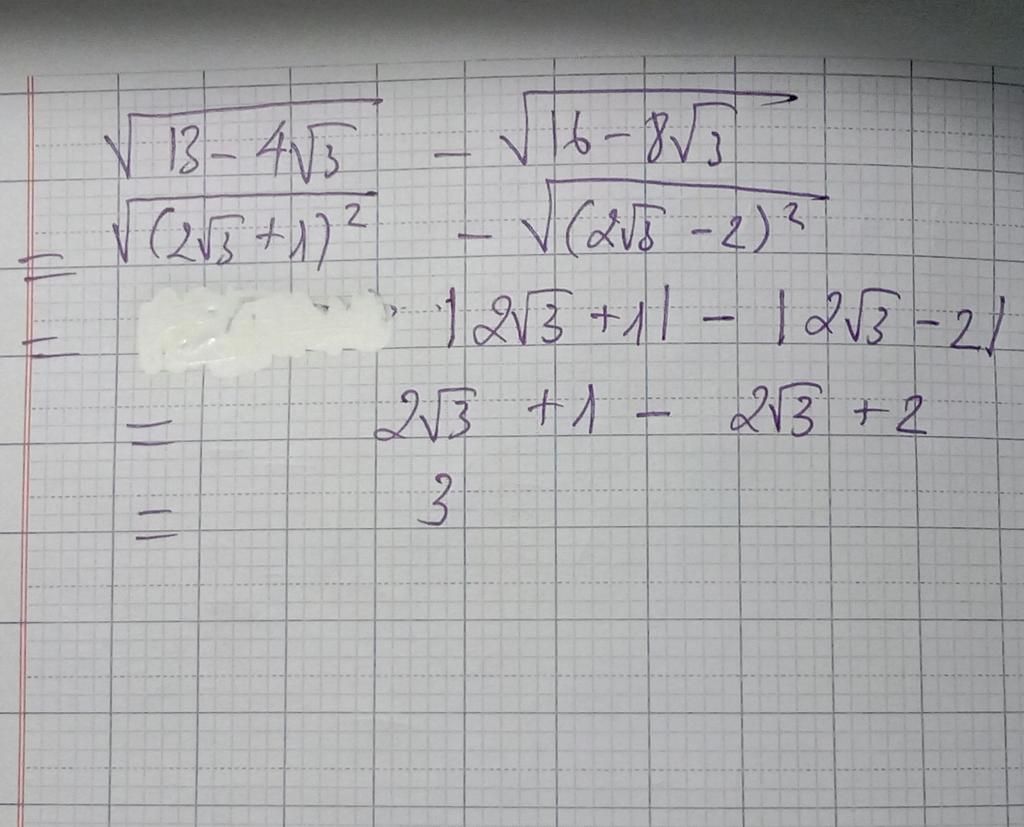 √(13 - 4√3) - √(16 - 8√3)
= √((2√3 + 1)²) - √((2√3 - 2)²)
= |2√3 + 1| - |2√3 - 2|
= 2√3 + 1 - 2√3 + 2
= 3